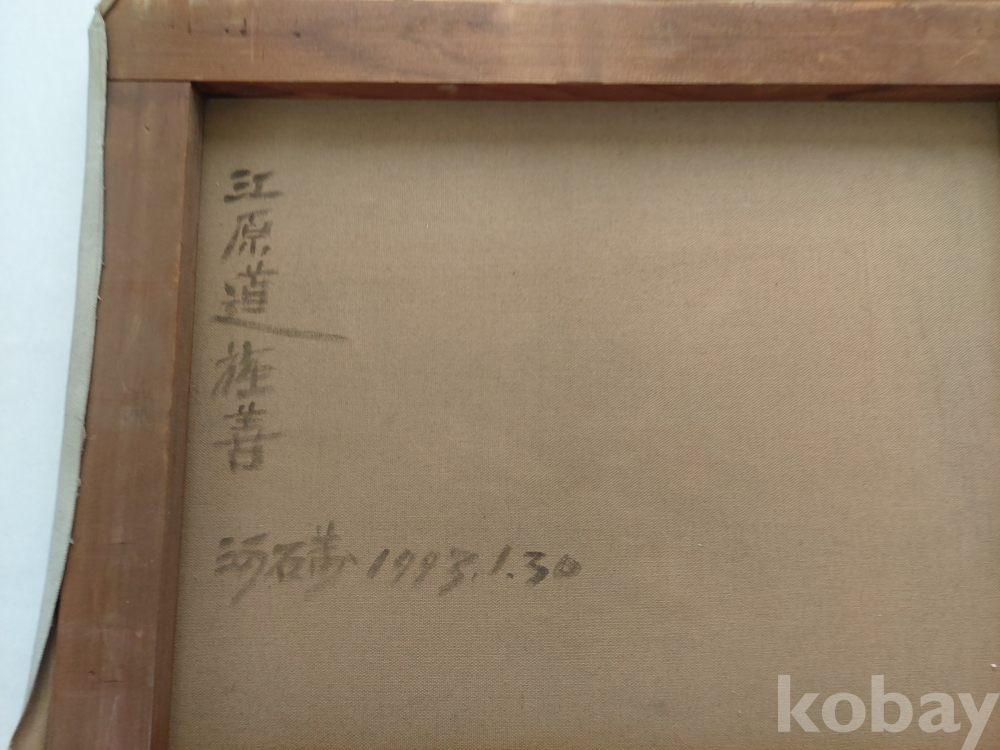 江原道旌善
1993.1.30
kobay